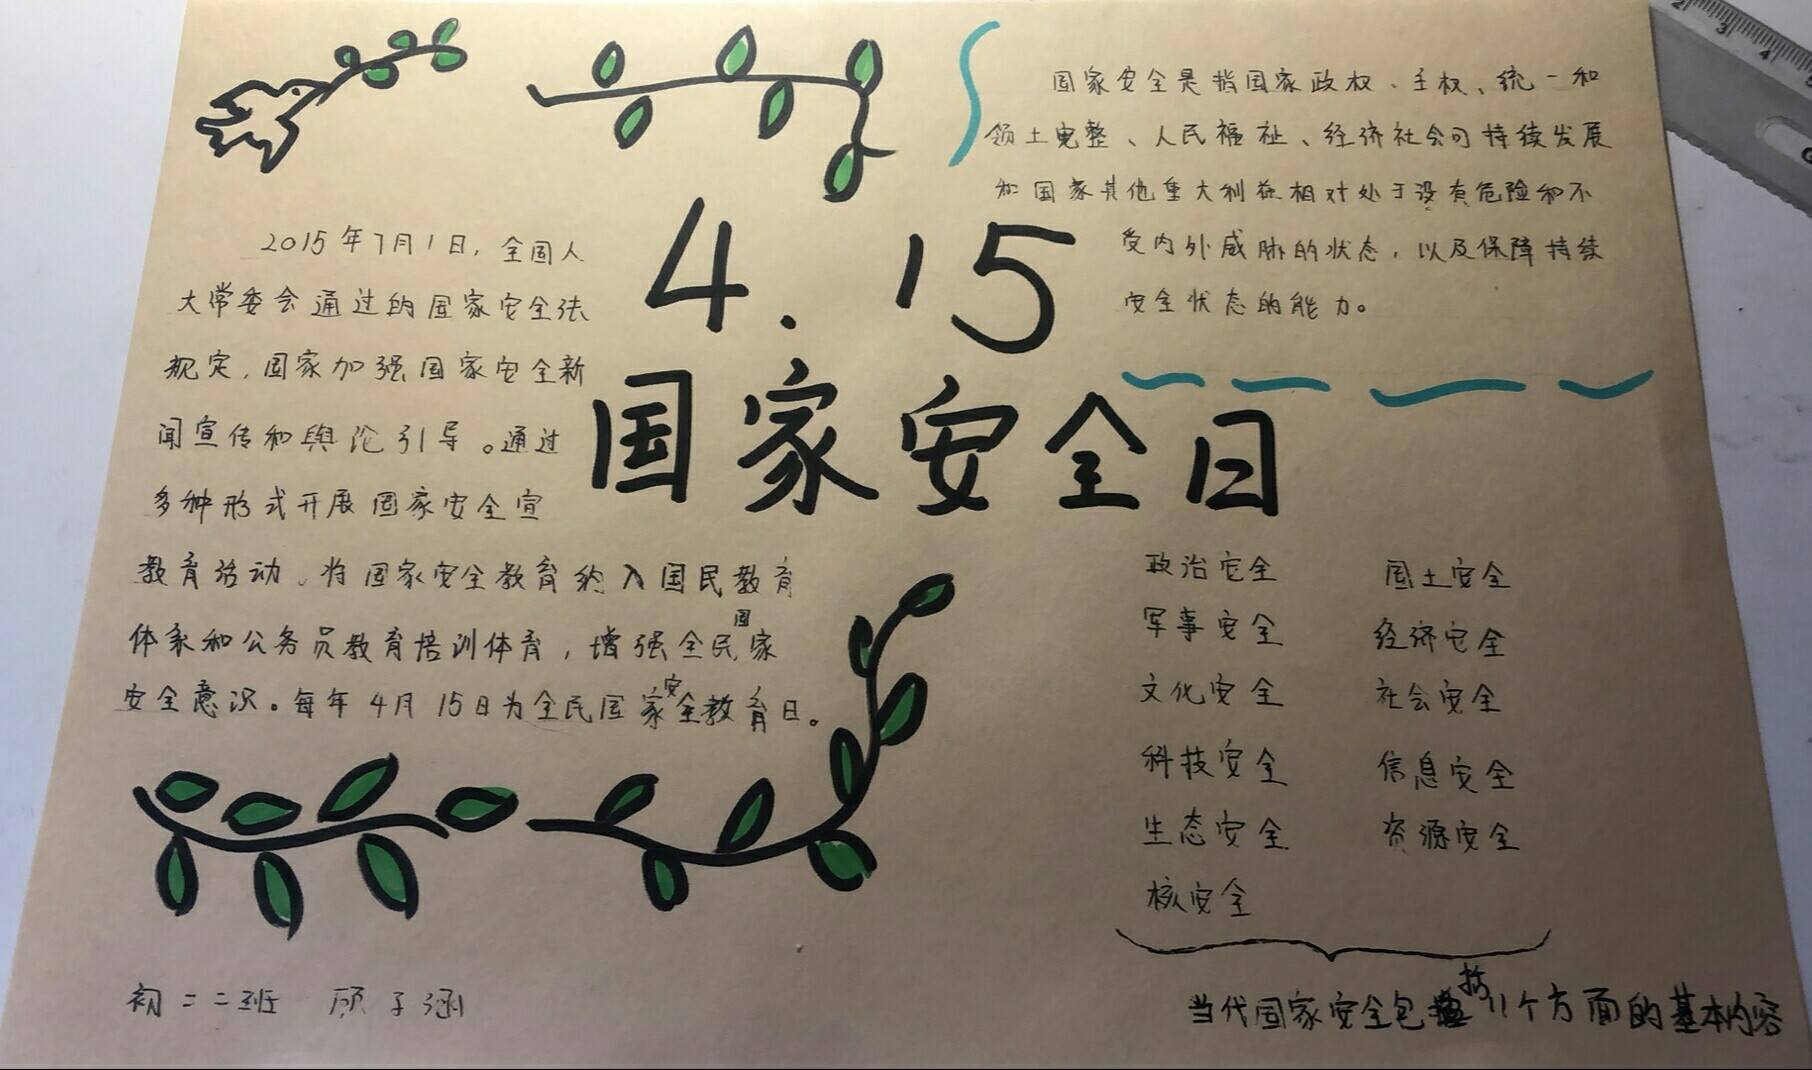 4.15
国家安全日
2015年7月1日，全国人
大常委会通过的国家安全法
规定，国家加强国家安全新
闻宣传和舆论引导。通过
多种形式开展国家安全宣
教育活动、将国家安全教育纳入国民教育
体系和公务员教育培训体育，增强全民国家
安全意识。每年4月15日为全民国家安全教育日。
国家安全是指国家政权、主权、统一和
领土完整、人民福祉、经济社会可持续发展
和国家其他重大利益相对处于没有危险和不
受内外威胁的状态，以及保障持续
安全状态的能力。
政治安全 国土安全
军事安全 经济安全
文化安全 社会安全
科技安全 信息安全
生态安全 资源安全
核安全
当代国家安全包括11个方面的基本内容
初二二班 顾子涵
2 3 4